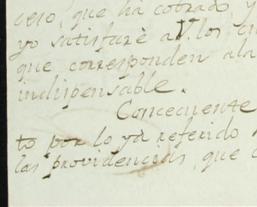 cero, que ha cobrado y
yo satisfaré a V. los
que corresponden a la
indispensable.
Concecuente
to por lo ya referido
las providencias, que